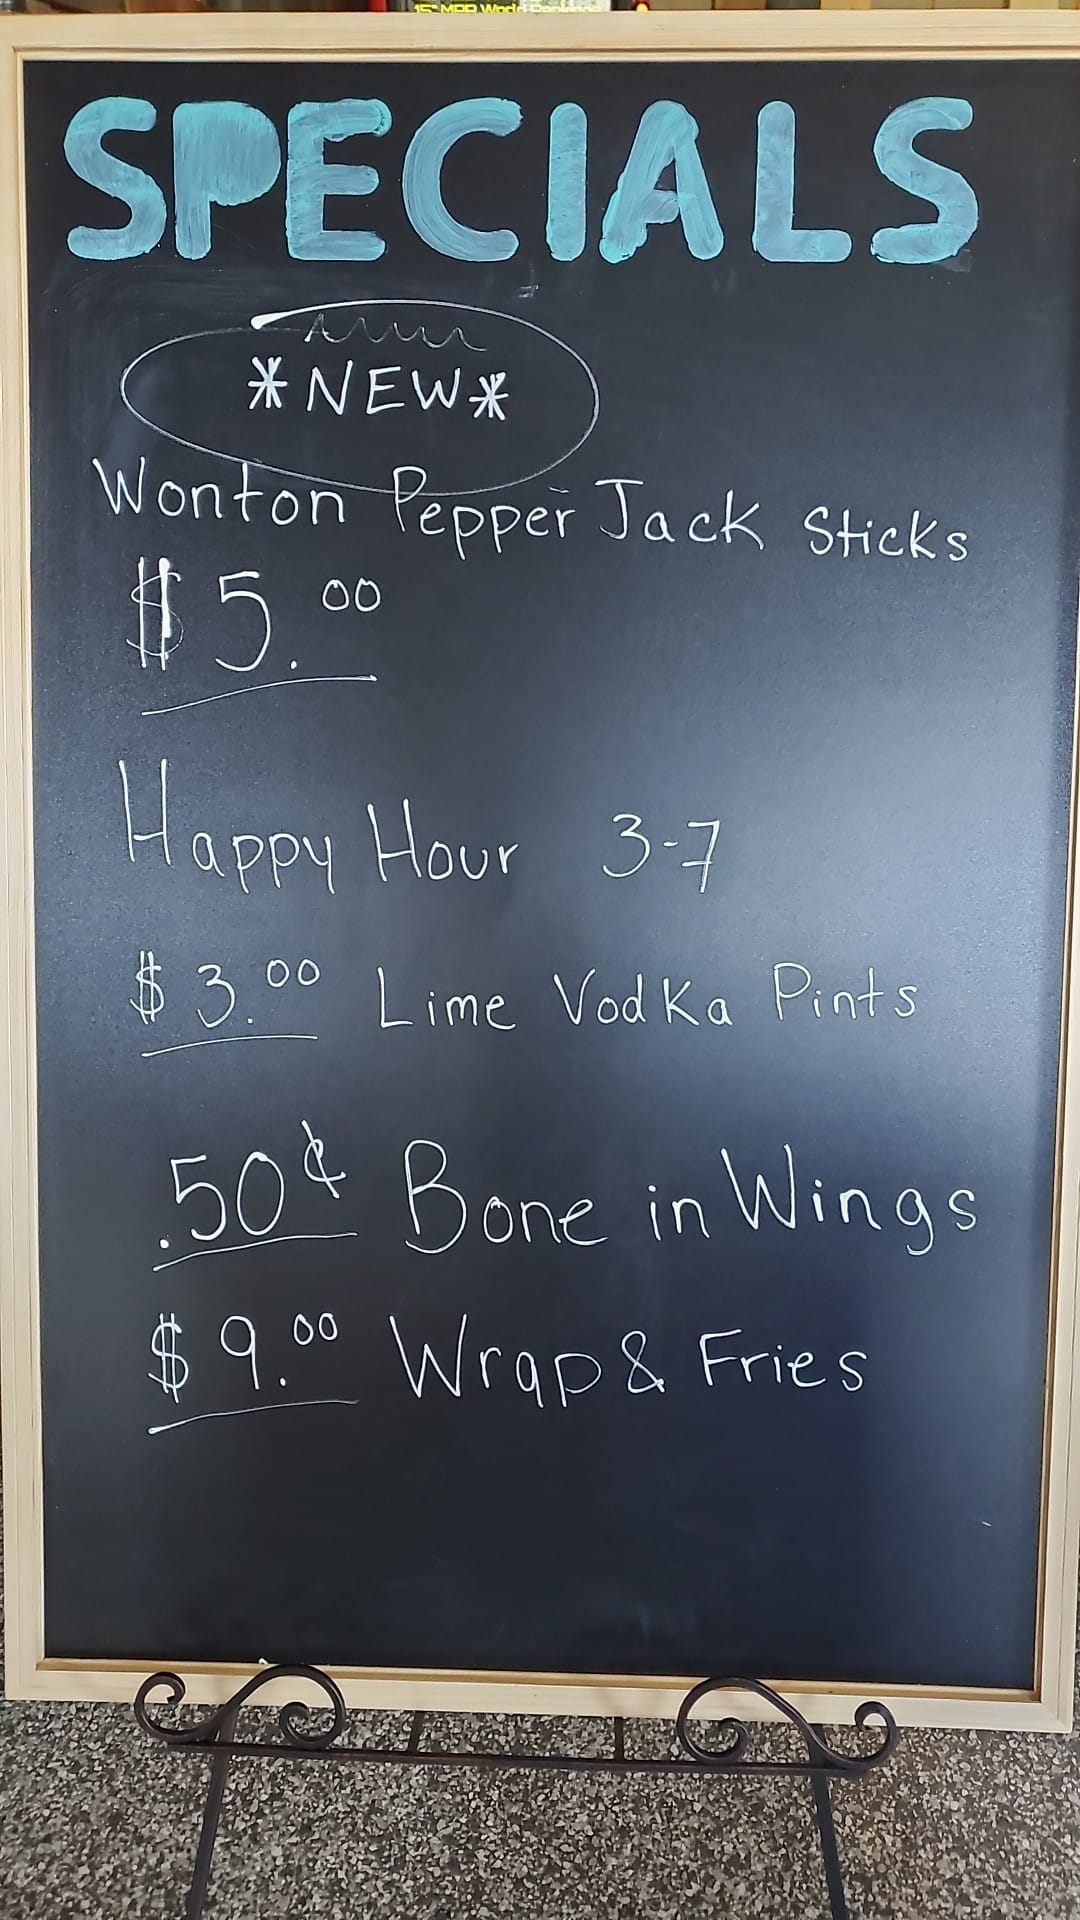 15" MPP World Rankings
SPECIALS
*NEW*
Wonton Pepper Jack Sticks
$5.00
Happy Hour 3-7
$3.00 Lime Vodka Pints
.50¢ Bone in Wings
$9.00 Wrap & Fries